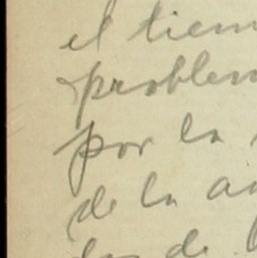 el tiem
problem
por la
de la a
de